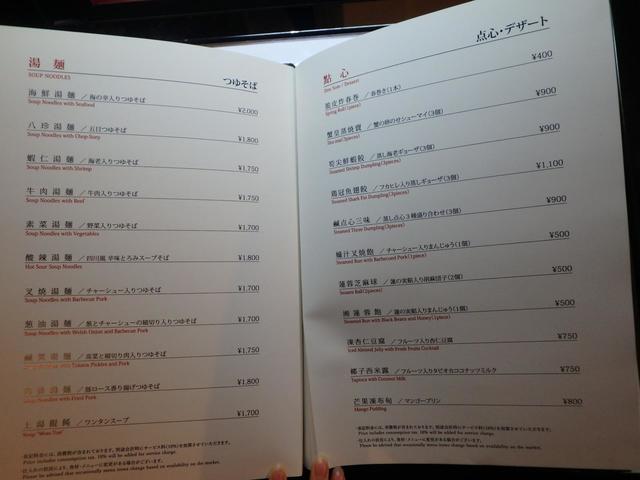 湯麺
SOUP NOODLES
つゆそば
海鮮湯麺 / 海の幸入りつゆそば
Soup Noodles with Seafood
¥2,000
八珍湯麺 / 五目つゆそば
Soup Noodles with Chop-Suey
¥1,800
蝦仁湯麺 / 海老入りつゆそば
Soup Noodles with Shrimp
¥1,750
牛肉湯麺 / 牛肉入りつゆそば
Soup Noodles with Beef
¥1,750
素菜湯麺 / 野菜入りつゆそば
Soup Noodles with Vegetables
¥1,700
酸辣湯麺 / 四川風 辛味とろみスープそば
Hot Sour Soup Noodles
¥1,800
叉焼湯麺 / チャーシュー入りつゆそば
Soup Noodles with Barbecue Pork
¥1,700
葱油湯麺 / 葱とチャーシューの細切り入りつゆそば
Soup Noodles with Welsh Onion and Barbecue Pork
¥1,700
湯麺 / 高菜と細切り肉入りつゆそば
Soup Noodles with Takana Pickles and Pork
¥1,750
湯麺 / 豚ロース香り揚げつゆそば
Soup Noodles with Fried Pork
¥1,800
上湯餛飩 / ワンタンスープ
Soup "Wonn-Tonn"
¥1,700
・表記料金には、消費税が含まれております。別途会計時にサービス料(10%)を加算させていただきます。
Price includes consumption tax. 10% will be added for service charge.
・仕入れの状況により、食材・メニューに変更がある場合がございます。
Please be advised that occasionally menu items change based on availability on the market.
点心・デザート
點心
Dim Sum / Dessert
脆皮炸春巻 / 春巻き(1本)
Spring Roll(1piece)
¥400
蟹皇蒸焼賣 / 蟹の卵のせシューマイ(3個)
Siu-mai(3pieces)
¥900
筍尖鮮蝦餃 / 蒸し海老ギョーザ(3個)
Steamed Shrimp Dumpling(3pieces)
¥900
鶏冠魚翅餃 / フカヒレ入り蒸しギョーザ(3個)
Steamed Shark Fin Dumpling(3pieces)
¥1,100
鹹點心三味 / 蒸し点心3種盛り合わせ(3個)
Steamed Three Dumpling(3pieces)
¥900
蠔汁叉焼飽 / チャーシュー入りまんじゅう(1個)
Steamed Bun with Barbecued Pork(1piece)
¥500
蓮蓉芝麻球 / 蓮の実餡入り胡麻団子(2個)
Sesame Ball(2pieces)
¥500
湘蓮蓉飽 / 蓮の実餡入りまんじゅう(1個)
Steamed Bun with Black Beans and Honey(1piece)
¥500
凍杏仁豆腐 / フルーツ入り杏仁豆腐
Iced Almond Jelly with Fresh Fruits Cocktail
¥750
椰子西米露 / フルーツ入りタピオカココナッツミルク
Tapioca with Coconut Milk
¥750
芒果凍布甸 / マンゴープリン
Mango Pudding
¥800
・表記料金には、消費税が含まれております。別途会計時にサービス料(10%)を加算させていただきます。
Price includes consumption tax. 10% will be added for service charge.
・仕入れの状況により、食材・メニューに変更がある場合がございます。
Please be advised that occasionally menu items change based on availability on the market.